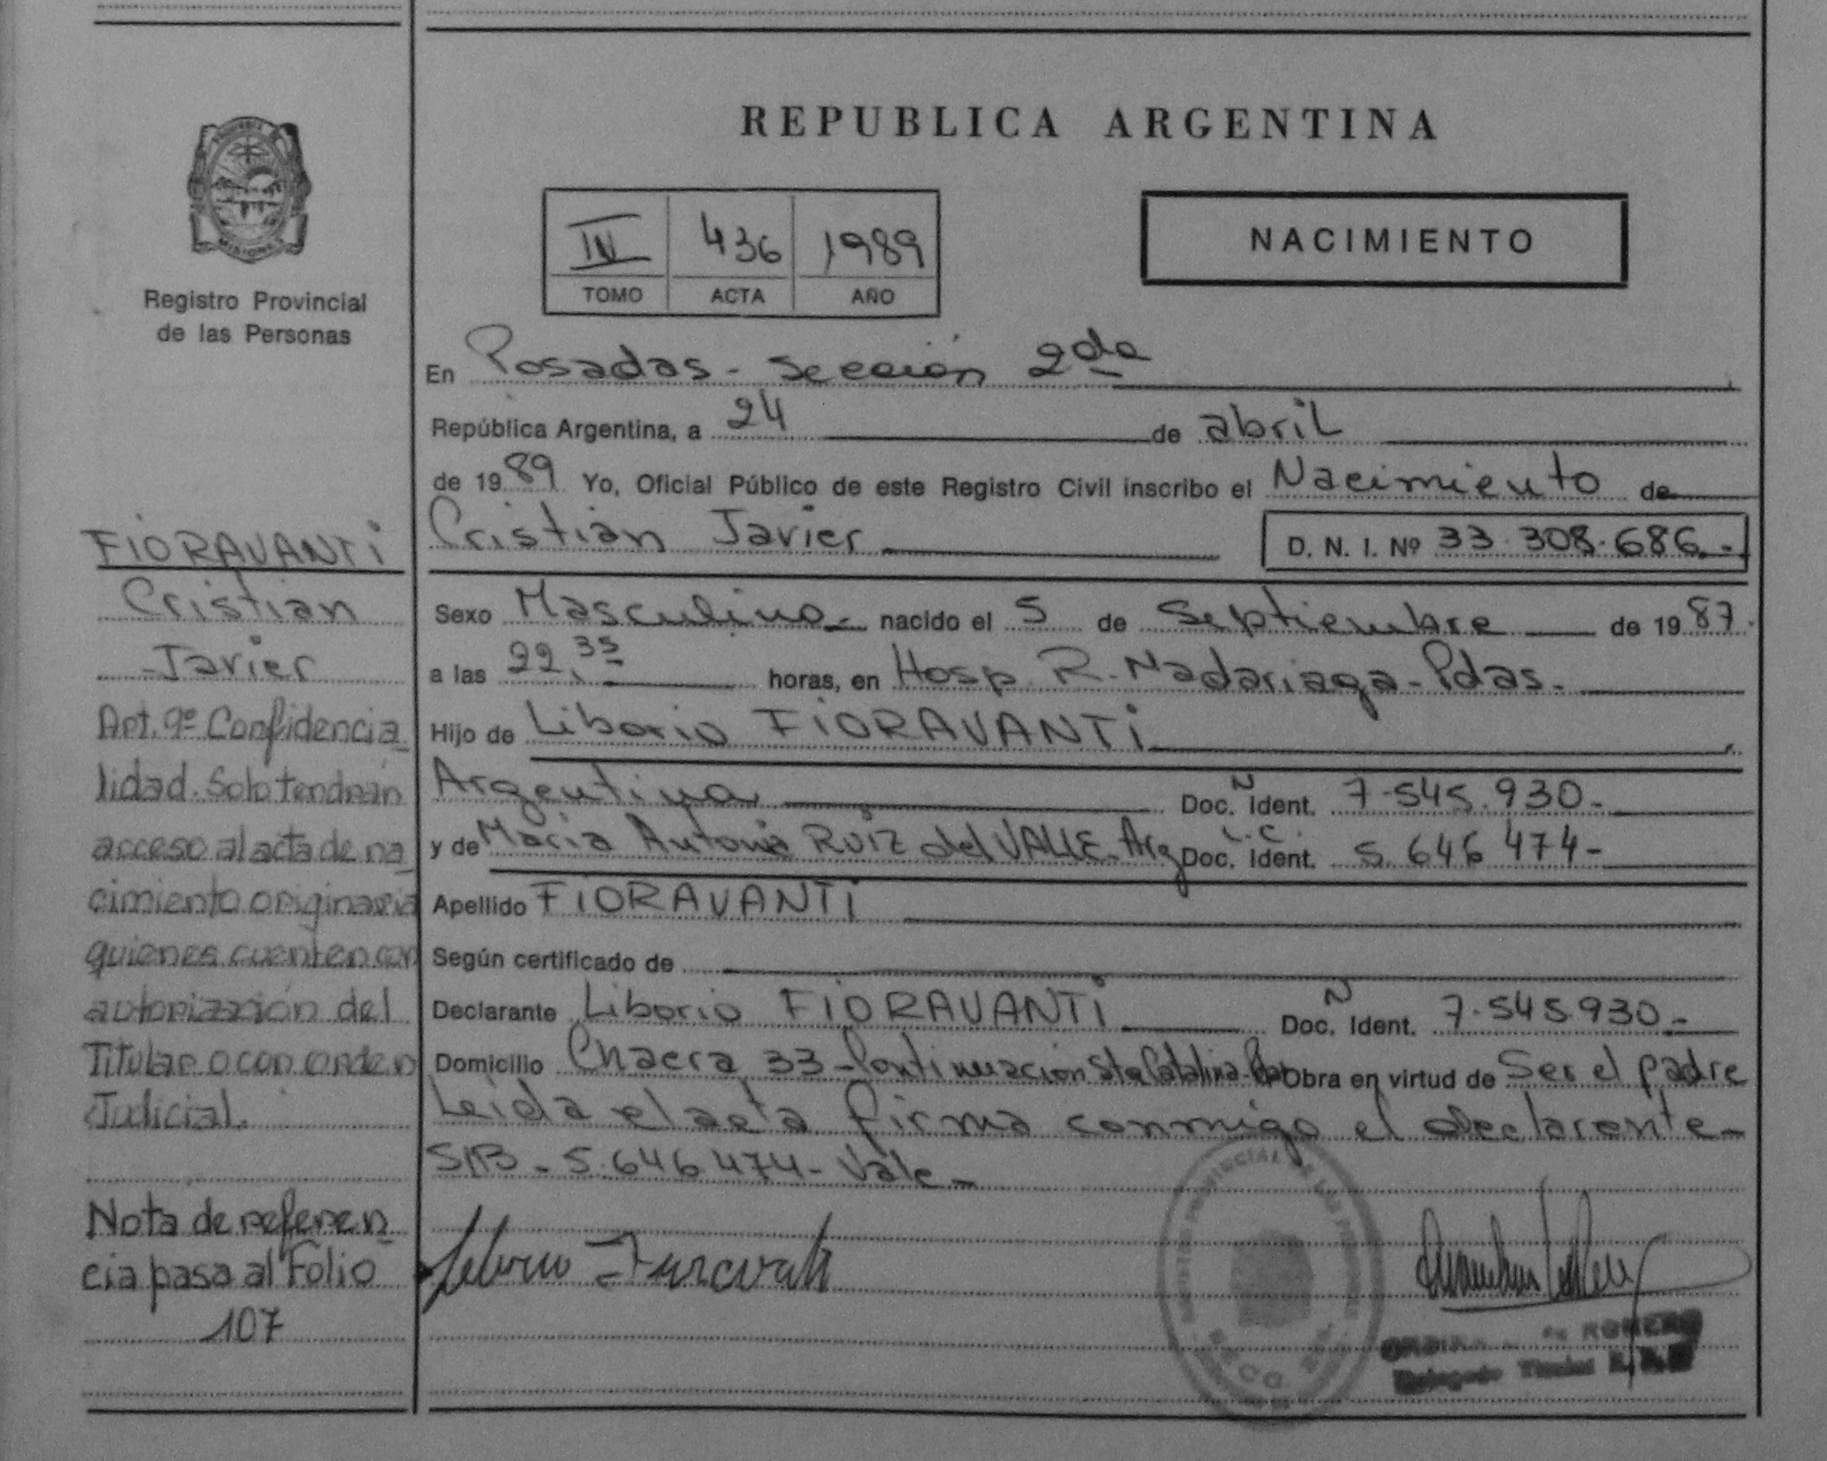 REPUBLICA ARGENTINA
IV 436 1989
TOMO ACTA AÑO
NACIMIENTO
Registro Provincial
de las Personas
En Posadas - Sección 2da
República Argentina, a 24 de abril
de 1989 Yo, Oficial Público de este Registro Civil inscribo el Nacimiento de
Cristian Javier D. N. I. Nº 33.308.686.-
Sexo Masculino.- nacido el 5 de Septiembre de 1987.
a las 22.35 horas, en Hosp R. Madariaga - Pdas.
Hijo de Liborio FIORAVANTI
Argentina Doc. Ident. 7.545.930-
y de Maria Antonia RUIZ del VALLE - Arg L.C. Doc. Ident. 5.646 474-
Apellido FIORAVANTI
Según certificado de
Declarante Liborio FIORAVANTI Doc. Ident. 7.545.930-
Domicilio Chacra 33 - Continuación Sta Catalina Obra en virtud de Ser el padre
Leida el acta firma conmigo el declarante-
S/B - 5.646 474 - Vale -
FIORAVANTI
Cristian
Javier
Art. 9º Confidencia
lidad. Solo tendrán
acceso al acta de na
cimiento originaria
quienes cuenten con
autorización del
Titular o con orden
Judicial.
Nota de referen
cia pasa al Folio
107
de ROMERO